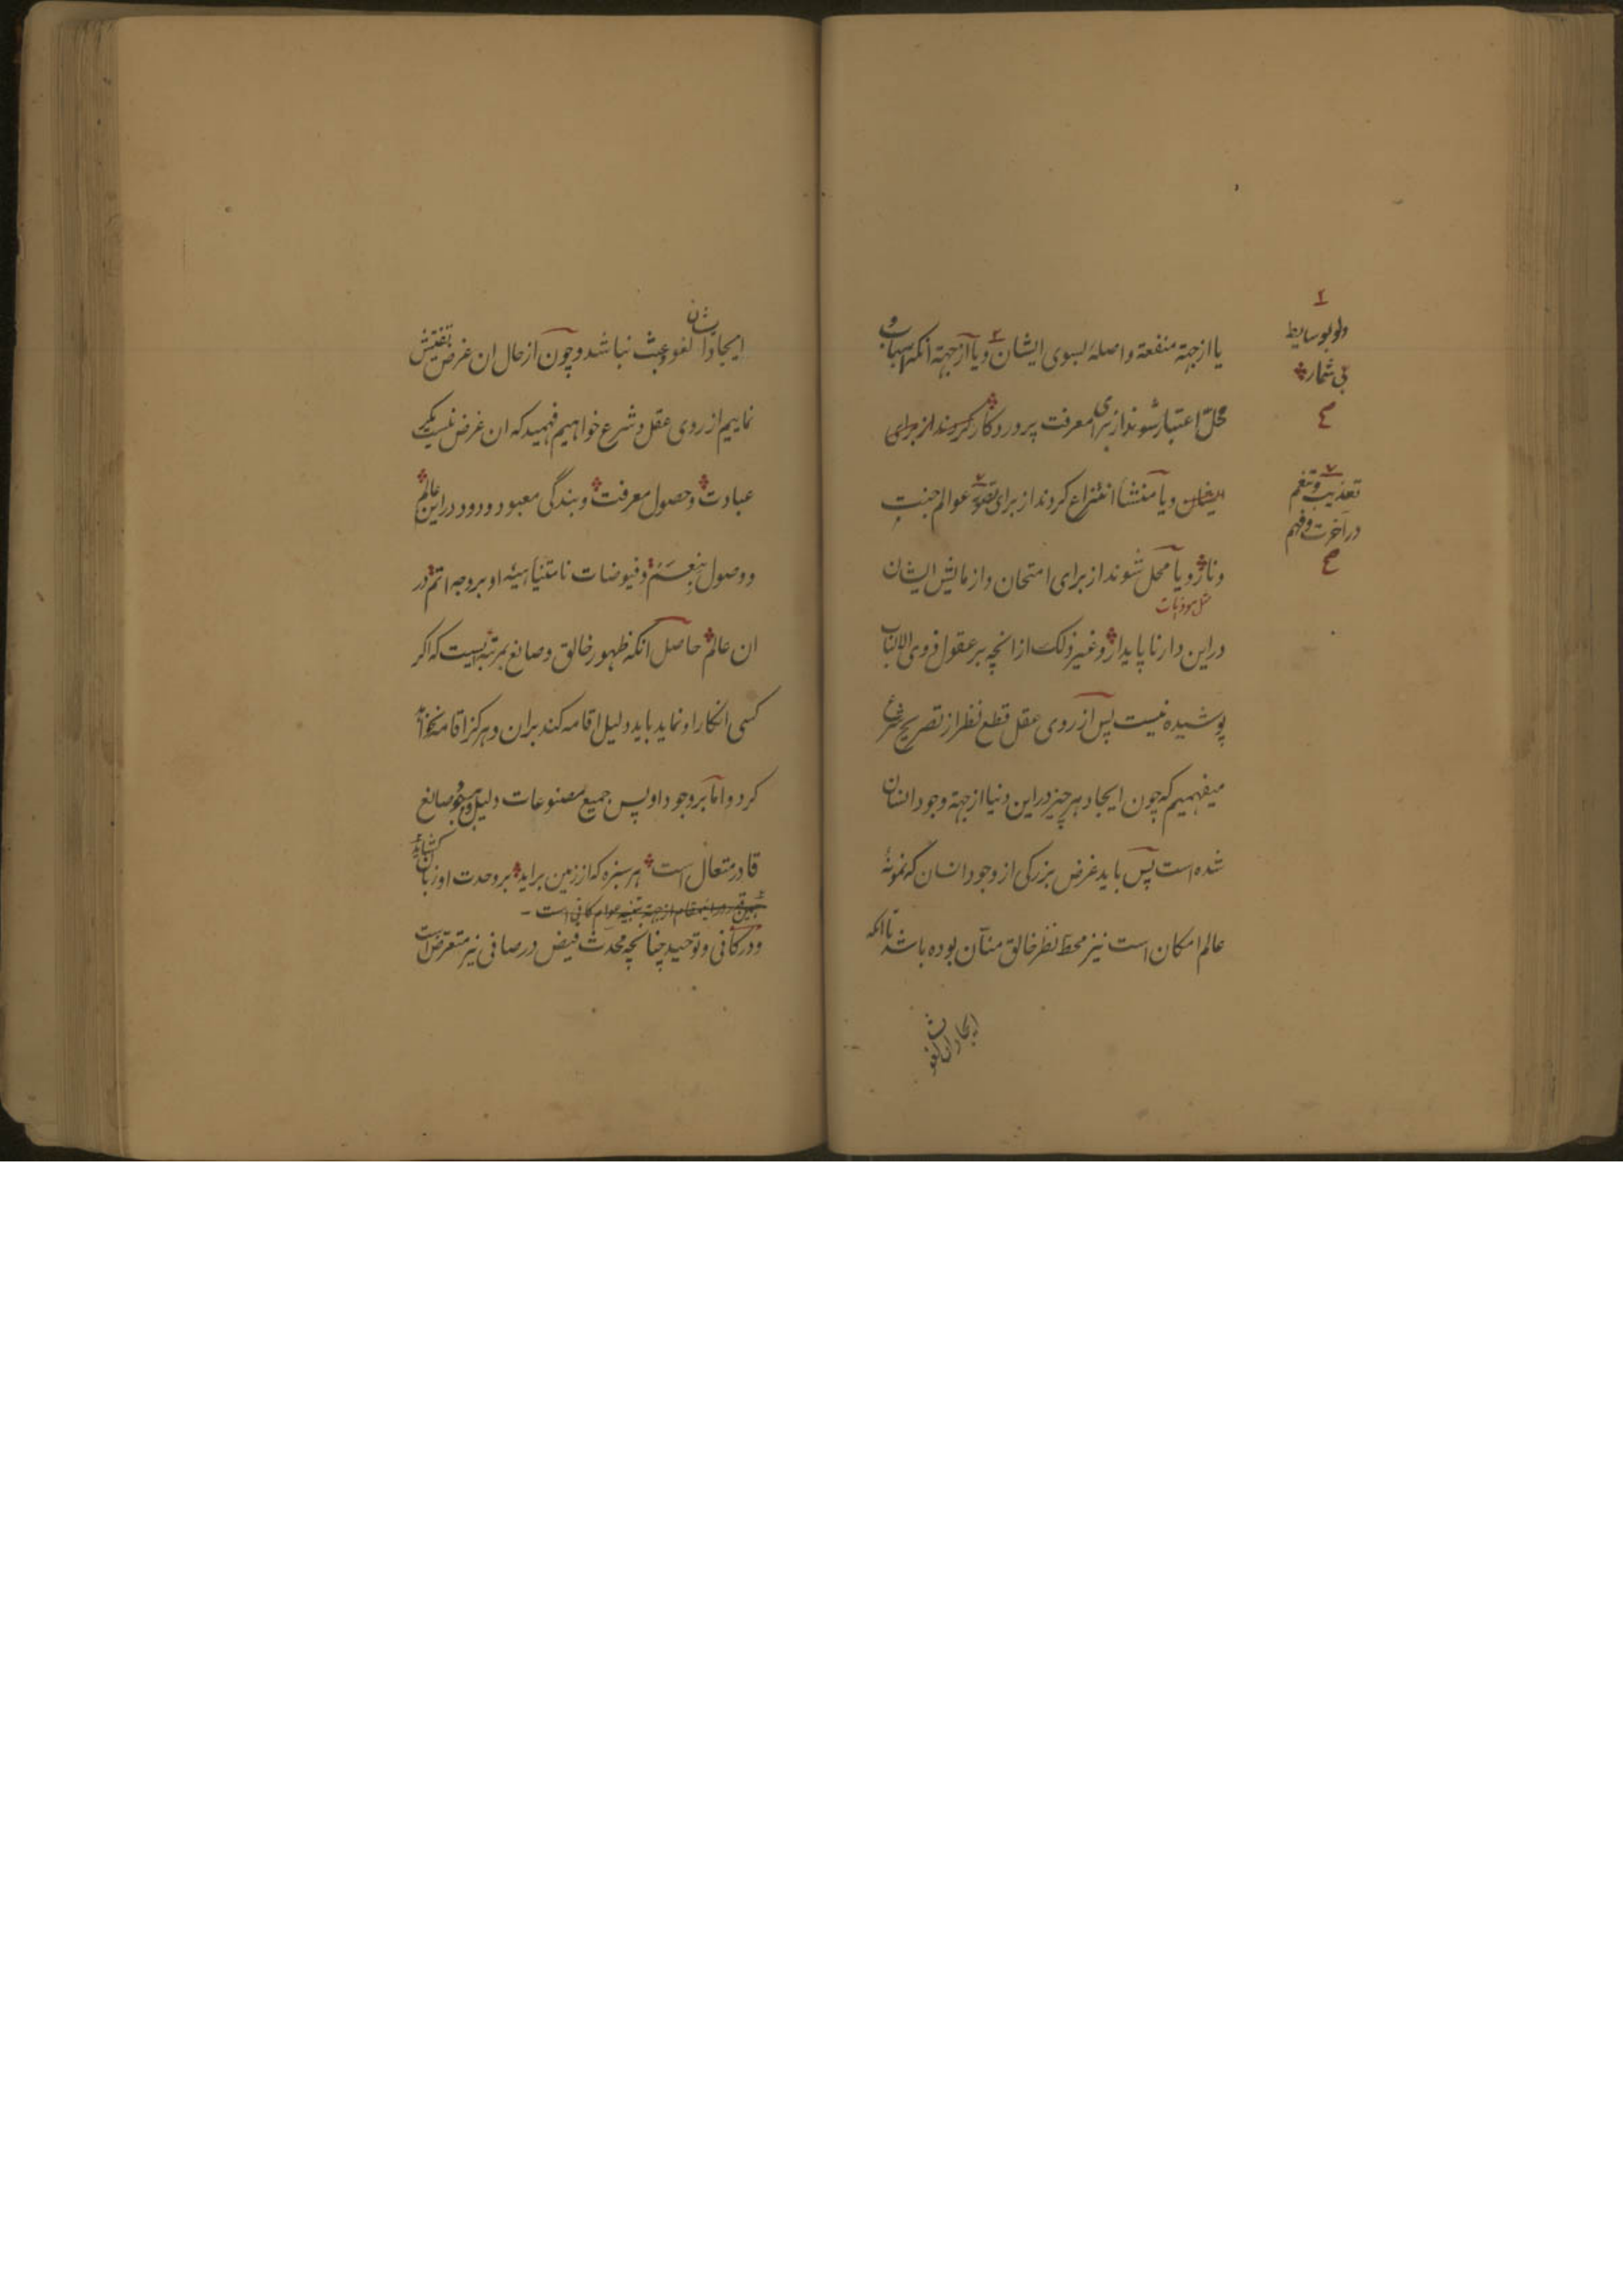 یا از جهته منفعة واصلهٔ بسوی ایشان ویا از جهته انکه اسباب و
محل اعتبار شوند از برای معرفت پروردکار کردند از برای
ایشان ویا منشأ انتزاع کردند از برای تصور عوالم جنت
ونار ویا محل شوند از برای امتحان وازمایش ایشان
مثل موذیات
دراین دار ناپایدار وغیر ذلک از انچه بر عقول ذوی الالباب
پوشیده نیست پس از روی عقل قطع نظر از تصریح شرع
میفهمیم که چون ایجاد هر چیز دراین دنیا از جهته وجود انسان
شده است پس باید غرض بزرکی از وجود انسان که نمونهٔ
عالم امکان است نیز محط نظر خالق منان بوده باشد تا انکه
ایجادشان لغو
ولو بوسایط
بی شمار
تعذیب وتنعم
در آخرت وفهم
ایجادشان لغو وعبث نباشد وچون از حال ان غرض تفتیش
نماییم از روی عقل وشرع خواهیم فهمید که ان غرض نیست مکر
عبادت وحصول معرفت وبندکی معبود ودود دراین عالم
ووصول بنعم وفیوضات نامتناهیهٔ او بروجه اتم در
ان عالم حاصل انکه ظهور خالق وصانع بمرتبه ایست که اکر
کسی انکار او نماید باید دلیل اقامه کند بران وهرکز اقامه نخواهد
کرد واما بر وجود او پس جمیع مصنوعات دلیل وجود صانع
قادر متعال است هر سبزه که از زمین براید بر وحدت او زبان کشاید
همین قدر دراینمقام از جهته تنبیه عوام کافی است
ودر کافی وتوحید چنانچه محدث فیض در صافی نیز متعرض است